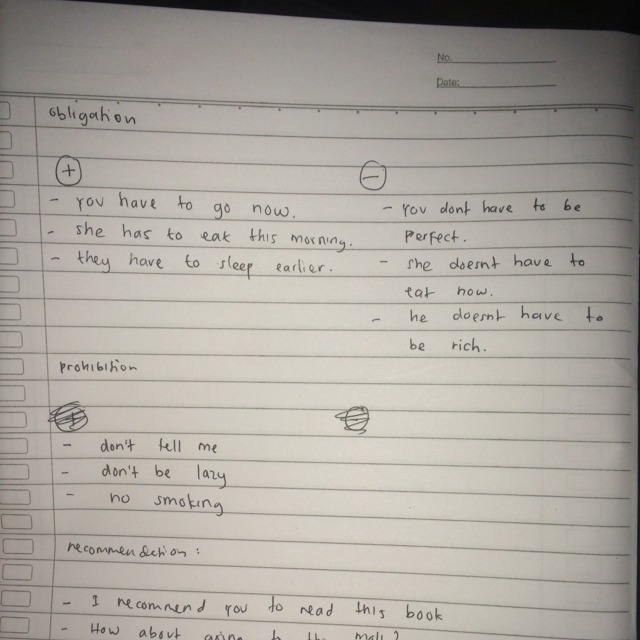 No.
Date:
obligation
+ -
- you have to go now. - you dont have to be
- she has to eat this morning. perfect.
- they have to sleep earlier. - she doesnt have to
eat now.
- he doesnt have to
be rich.
prohibition
- don't tell me
- don't be lazy
- no smoking
recommendation :
- I recommend you to read this book
- How about going to the mall?